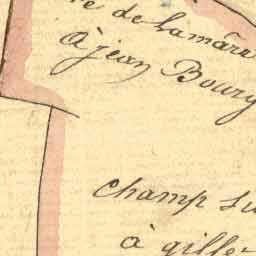 re de Lamare
à jean Bourg
champ su
à gille